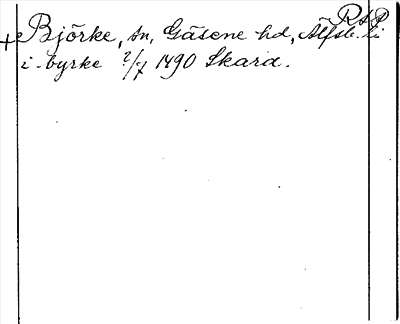 RAP
+ Björke, sn, Gäsene hd, Älfsb. li
i byrke 2/7 1490 Skara.